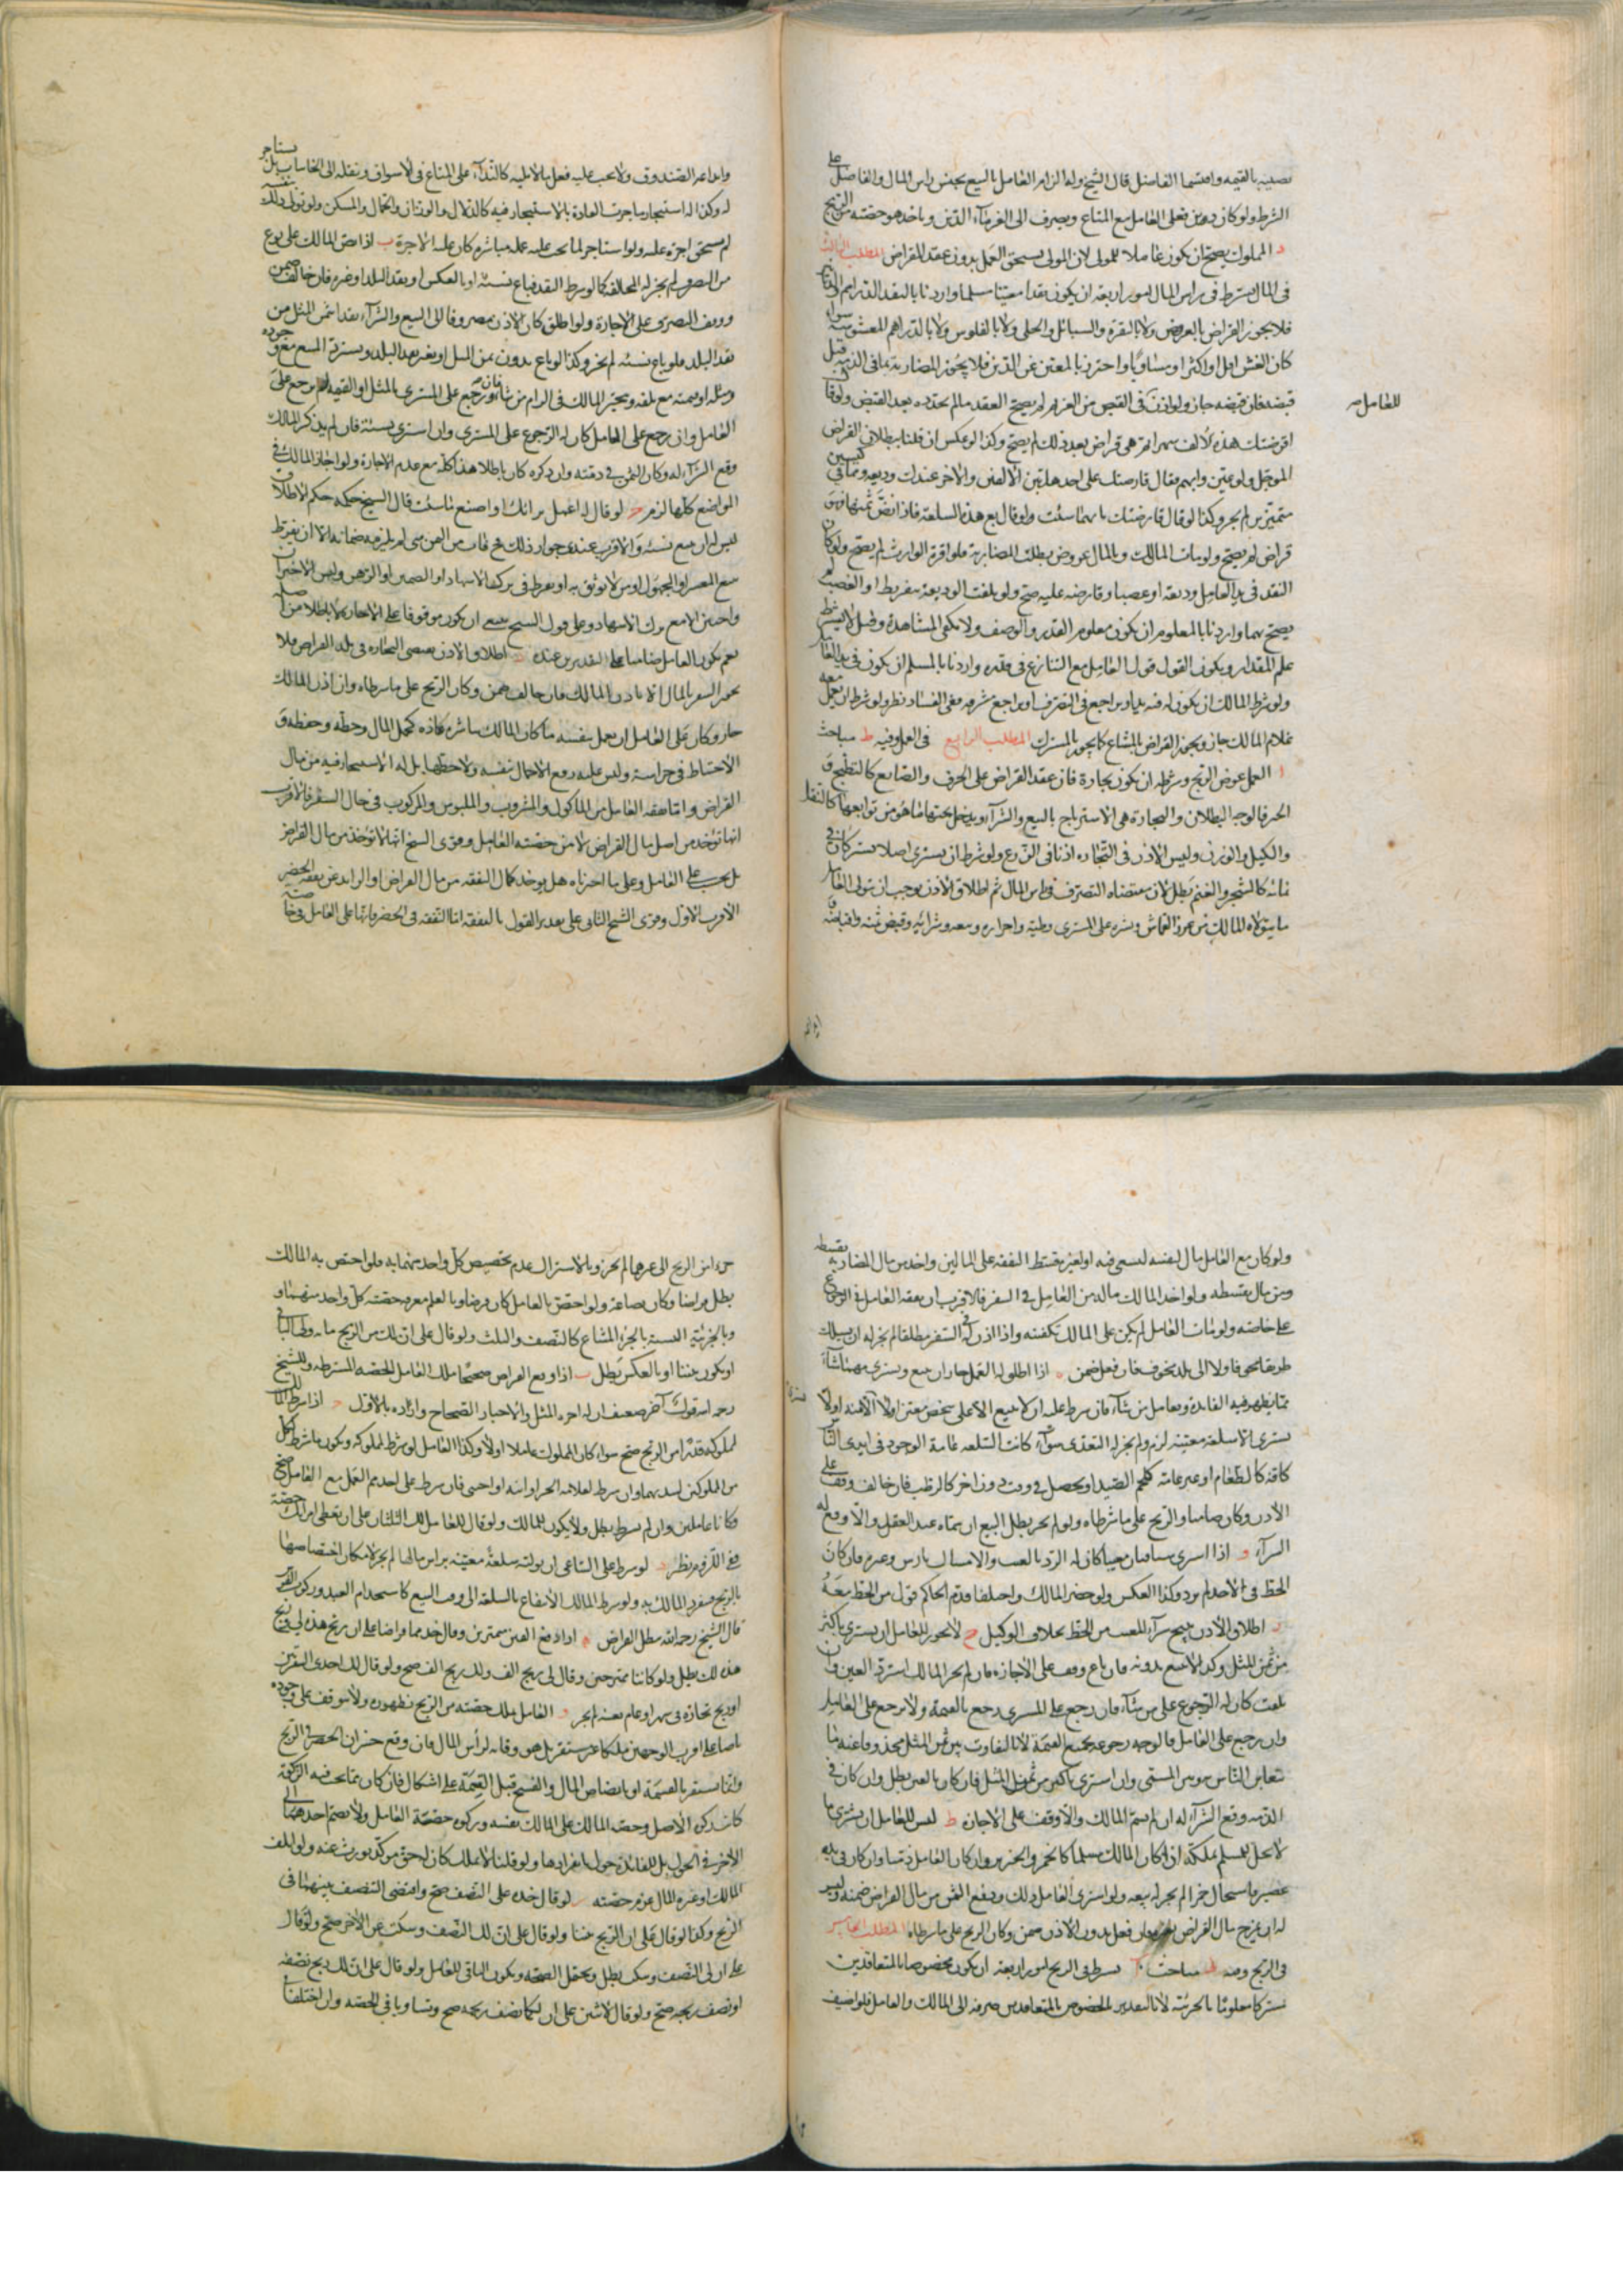 نصيبه بالقيمة واقتسما الفاضل قال الشيخ وله الزام العامل بالبيع بجنس راس المال والفاضل على
الشرط ولو كان دين فعلى العامل مع المتاع ويصرف الى الغرماء الدين وياخذ هو حصته من الربح
د المملوك يصح ان يكون عاملا للمولى لان المولى يستحق العمل بدون عقد القراض المطلب الثالث
في المال يشترط في راس المال امور اربعة ان يكون نقدا معينا مسلما واردنا بالنقد الدراهم او الدنانير
فلا يجوز القراض بالعروض ولا بالنقرة والسبائك والحلى ولا بالفلوس ولا بالدراهم المغشوشة سواء
كان الغش اقل او اكثر او متساويا واحترزنا بالمعين عن الدين فلا يجوز المضاربة بما في الذمة قبل
قبضه فان قبضه جاز ولو اذن في القبض من الغريم لم يصح العقد ما لم يجدده بعد القبض ولو قال
للعامل
اقرضتك هذه الالف شهرا ثم هي قراض بعد ذلك لم يصح وكذا لو عكس ان قلنا ببطلان القراض
المؤجل ولو عين وابهم فقال قارضتك على احد هذين الالفين والاخر عندك وديعة وهما في كيسين
متميزين لم يجز وكذا لو قال قارضتك بايهما شئت ولو قال بع هذه السلعة فاذا نض ثمنها فهو
قراض لم يصح ولو مات المالك وبالمال عروض بطلت المضاربة فلو اقره الوارث لم يصح ولو كان
النقد في يد العامل وديعة او غصبا وقارضه عليه صح ولو تلفت الوديعة بتفريط او الغصب لم
يصح بهما واردنا بالمعلوم ان يكون معلوم القدر والوصف ولا يكفي المشاهدة وقيل لا يشترط
علم المقدار ويكون القول قول العامل مع التنازع في قدره واردنا بالمسلم ان يكون في يد العامل
ولو شرط المالك ان يكون له فيه يد او يراجع في التصرف او يراجع مشرفه ففي الفساد نظر ولو شرط ان يعمل معه
غلام المالك جاز ويجوز القراض بالمشاع كما يجوز بالمشترك المطلب الرابع في العمل وفيه ط مباحث
ا العمل عوض الربح وشرطه ان يكون تجارة فان عقد القراض على الحرف والصنايع كالطبخ و
الخبز فالوجه البطلان والتجارة هي الاسترباح بالبيع والشراء ويدخل تحتها ما هو من توابعها كالنقل
والكيل والوزن وليس الاذن في التجارة اذنا في الزرع ولو شرط ان يشتري اصلا يشتركان في
نمائه كالشجر والغنم بطل لان مقتضاه التصرف في راس المال ثم اطلاق الاذن يوجب ان يتولى العامل
ما يتولاه المالك من عرض القماش ونشره على المشتري وطيه واحرازه وبيعه وشرائه وقبض ثمنه واقباضه و
وايداعه الصندوق ولا يجب عليه فعل ما لا يليه كالنداء على المتاع في الاسواق ونقله الى الخانات بل يستاجر
له وكذا له استيجار ما جرت العادة بالاستيجار فيه كالدلال والوزان والحمال والمسكن ولو تولى ذلك بنفسه
لم يستحق اجرة عليه ولو استاجر لما يجب عليه عمله مباشرة كان عليه الاجرة ب اذا نص المالك على نوع
من التصرف لم يجز له المخالفة كما لو شرط النقد فباع نسيئة او بالعكس او بنقد البلد او غيره فان خالف ضمن
ووقف التصرف على الاجازة ولو اطلق كان الاذن مصروفا الى البيع والشراء نقدا بثمن المثل من
نقد البلد فلو باع نسيئة لم يجز وكذا لو باع بدون ثمن المثل او بغير نقد البلد ويسترد المبيع مع وجوده
ومثله او قيمته مع تلفه ويتخير المالك في الزام من شاء فان رجع على المشتري بالمثل او القيمة لم يرجع على
العامل وان رجع على العامل كان له الرجوع على المشتري وان اشترى بنسيئة فان لم يذكر المالك
وقع الشراء له وكان الثمن في ذمته وان ذكره كان باطلا هذا كله مع عدم الاجازة ولو اجاز المالك في
المواضع كلها لزم ج لو قال له اعمل برائك او اصنع ما شئت قال الشيخ حكمه حكم الاطلاق
ليس له ان يبيع نسيئة والاقرب عندي جواز ذلك فح فات من الثمن شي لم يلزمه ضمانه الا ان يفرط
ببيع المعسر او المجهول او من لا يوثق به او يفرط في ترك الاشهاد او الضمين او الرهن
نعم يكون العامل ضامنا على التقديرين عنده د اطلاق الاذن يقتضي التجارة في بلد القراض فلا
يجوز السفر بالمال الا باذن المالك فان خالف ضمن وكان الربح على ما شرطاه وان اذن المالك
جاز وكان على العامل ان يعمل بنفسه ما كان المالك مباشره كحمل المال وحطه وحفظه و
الاحتياط في حراسته وليس عليه رفع الاحمال بنفسه ولا حطها بل له الاستيجار فيه من مال
القراض واما نفقة العامل من الماكول والمشروب والملبوس والمركوب في حال السفر فالاقرب
انها تؤخذ من اصل مال القراض لا من حصته العامل وقوى الشيخ انها لا تؤخذ من مال القراض
بل يجب على العامل وعلى ما اخترناه هل يوخذ كمال النفقة من مال القراض او الزايد عن نفقة الحضر
الاقرب الاول وقوى الشيخ الثاني على تقدير القول بالنفقة اما النفقة في الحضر فانها على العامل في خاصته
ولو كان مع العامل مال لنفسه ليسعى فيه او لغيره قسط النفقة على المالين واخذ من مال المضاربة بقسطه
ومن ماله بقسطه ولو اخذ المالك ماله من العامل في السفر فالاقرب ان نفقة العامل في الرجوع
على خاصته ولو مات العامل لم يكن على المالك تكفينه واذا اذن له في السفر مطلقا لم يجز له ان يسلك
طريقا مخوفا ولا الى بلد مخوف فان فعل ضمن ه اذا اطلق له العمل جاز ان يبيع ويشتري مهما شاء
مما يظهر فيه الفائدة ويعامل من شاء فان شرط عليه ان لا يبيع الا على شخص معين او لا
يشتري الا سلعة معينة لزم ولم يجز له التعدي سواء كانت السلعة عامة الوجود في ايدي الناس
كافة كالطعام او غير عامة كلحم الصيد او يحصل في وقت دون اخر كالرطب فان خالف وقف على
الاذن وكان ضامنا والربح على ما شرطاه ولو لم يجز بطل البيع ان سماه عند العقد والا وقع له
الشراء و اذا اشترى شيئا فبان معيبا كان له الرد بالعيب والامساك بارش وغيره فان كان
الحظ في الاخذ لم يرد وكذا العكس ولو حضر المالك واختلفا قدم الحاكم قول من الحظ معه
ز اطلاق الاذن يبيح شراء المعيب مع الحظ بخلاف الوكيل ح لا يجوز للعامل ان يشتري باكثر
من ثمن المثل وكذا لا يبيع بدونه فان باع وقف على الاجازة فان لم يجز المالك استرد العين وان
تلفت كان له الرجوع على من شاء فان رجع على المشتري رجع بالقيمة ولا يرجع على العامل
وان رجع على العامل فالوجه رجوعه بجميع القيمة لا بالتفاوت بين ثمن المثل محذوفا عنه ما
يتغابن الناس به وبين المسمى وان اشترى باكثر من ثمن المثل فان كان بالعين بطل وان كان في
الذمة وقع الشراء له ان لم يسم المالك والا وقف على الاجازة ط ليس للعامل ان يشتري ما
لا يحل للمسلم تملكه اذا كان المالك مسلما كالخمر والخنزير وان كان العامل ذميا ولو كان في يده
عصير فاستحال خمرا لم يجز له بيعه ولو اشترى العامل ذلك ودفع الثمن من مال القراض ضمنه وليس
له ان يمزج مال القراض بغيره فان فعل بدون الاذن ضمن وكان الربح على ما شرطاه المطلب الخامس
في الربح وفيه مباحث ا يشترط في الربح امور اربعة ان يكون مخصوصا بالمتعاقدين
مشتركا معلوما بالجزئية لا بالتقدير المخصوص بالمتعاقدين صرفه الى المالك والعامل فلو اضيف
جزء من الربح الى غيرهما لم يجز وبالاشتراك عدم تخصيص كل واحد منهما به فلو اختص به المالك
بطل قراضا وكان بضاعة ولو اختص بالعامل كان قرضا وبالعلم معرفة حصته كل واحد منهما و
وبالجزئية النسبة بالجزء المشاع كالنصف والثلث ولو قال على ان لك من الربح مائة والباقي
او يكون بيننا او بالعكس بطل ب اذا وقع القراض صحيحا ملك العامل الحصة المشترطة وللشيخ
رحمه الله قول آخر ضعيف ان له اجرة المثل والاخبار الصحاح واردة بالاول ج اذا شرط المالك
لمملوكه قدرا من الربح صح سواء كان المملوك عاملا او لا وكذا العامل لو شرط لمملوكه ويكون ما شرط لكل
من المملوكين لسيدهما وان شرط لغلامه الحر او ابنه او اجنبي فان شرط على احدهم العمل مع العامل صح
وكانا عاملين وان لم يشترط بطل ولا يكون للمالك ولو قال للعامل لك الثلثان على ان تعطي امراتك
ففي اللزوم نظر د لو شرط على الساعي ان يوليه سلعة معينة براس مالها لم يجز لامكان اختصاصها
بالربح فينفرد المالك به ولو شرط المالك الانتفاع بالسلعة الى وقت البيع كاستخدام العبد وركوب الفرس
قال الشيخ رحمه الله بطل القراض ه اذا دفع الفين متميزين وقال خذهما قراضا على ان ربح هذه لي وربح
هذه لك بطل ولو كانتا ممتزجتين وقال لي ربح الف ولك ربح الف صح ولو قال لك احدى السفرتين
او ربح تجارة في شهر او عام بعينه لم يجز و العامل يملك حصته من الربح بظهوره ولا يتوقف على وجوده
ناضا على اقرب الوجهين ملكا غير مستقر بل هو وقاية لرأس المال فان وقع خسران انحصر في الربح
وانما يستقر بالقسمة او بانضاض المال والفسخ قبل القسمة على اشكال فان كان مما يجب فيه الزكوة
كانت زكوة الاصل وحصة المالك على المالك نفسه وزكوة حصة العامل ولا يضم احدهما الى
الاخر في الحول بل للفائدة حول بانفرادها ولو قلنا لا يملك كان له حق مؤكد يورث عنه ولو اتلف
المالك او غيره المال غرم حصته ز لو قال خذه على النصف صح واقتضى التنصيف بينهما في
الربح وكذا لو قال على ان الربح بيننا ولو قال على ان لك النصف وسكت عن الاخر صح ولو قال
على ان لي النصف وسكت بطل ويحتمل الصحة ويكون الباقي للعامل ولو قال على ان لك ربح نصفه
او نصف ربحه صح ولو قال لاثنين على ان لكما نصف ربحه صح وتساويا في الحصة وان اختلفا